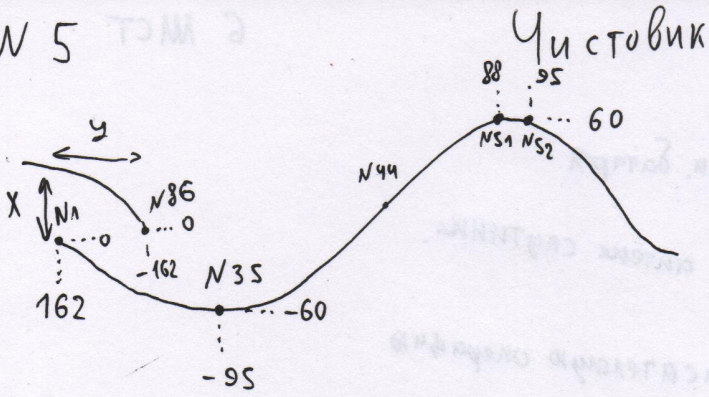 N 5
Чистовик
88 95
60
N51 N52
N44
y
x
N1
0
N86
0
162
-162
N35
-60
-95